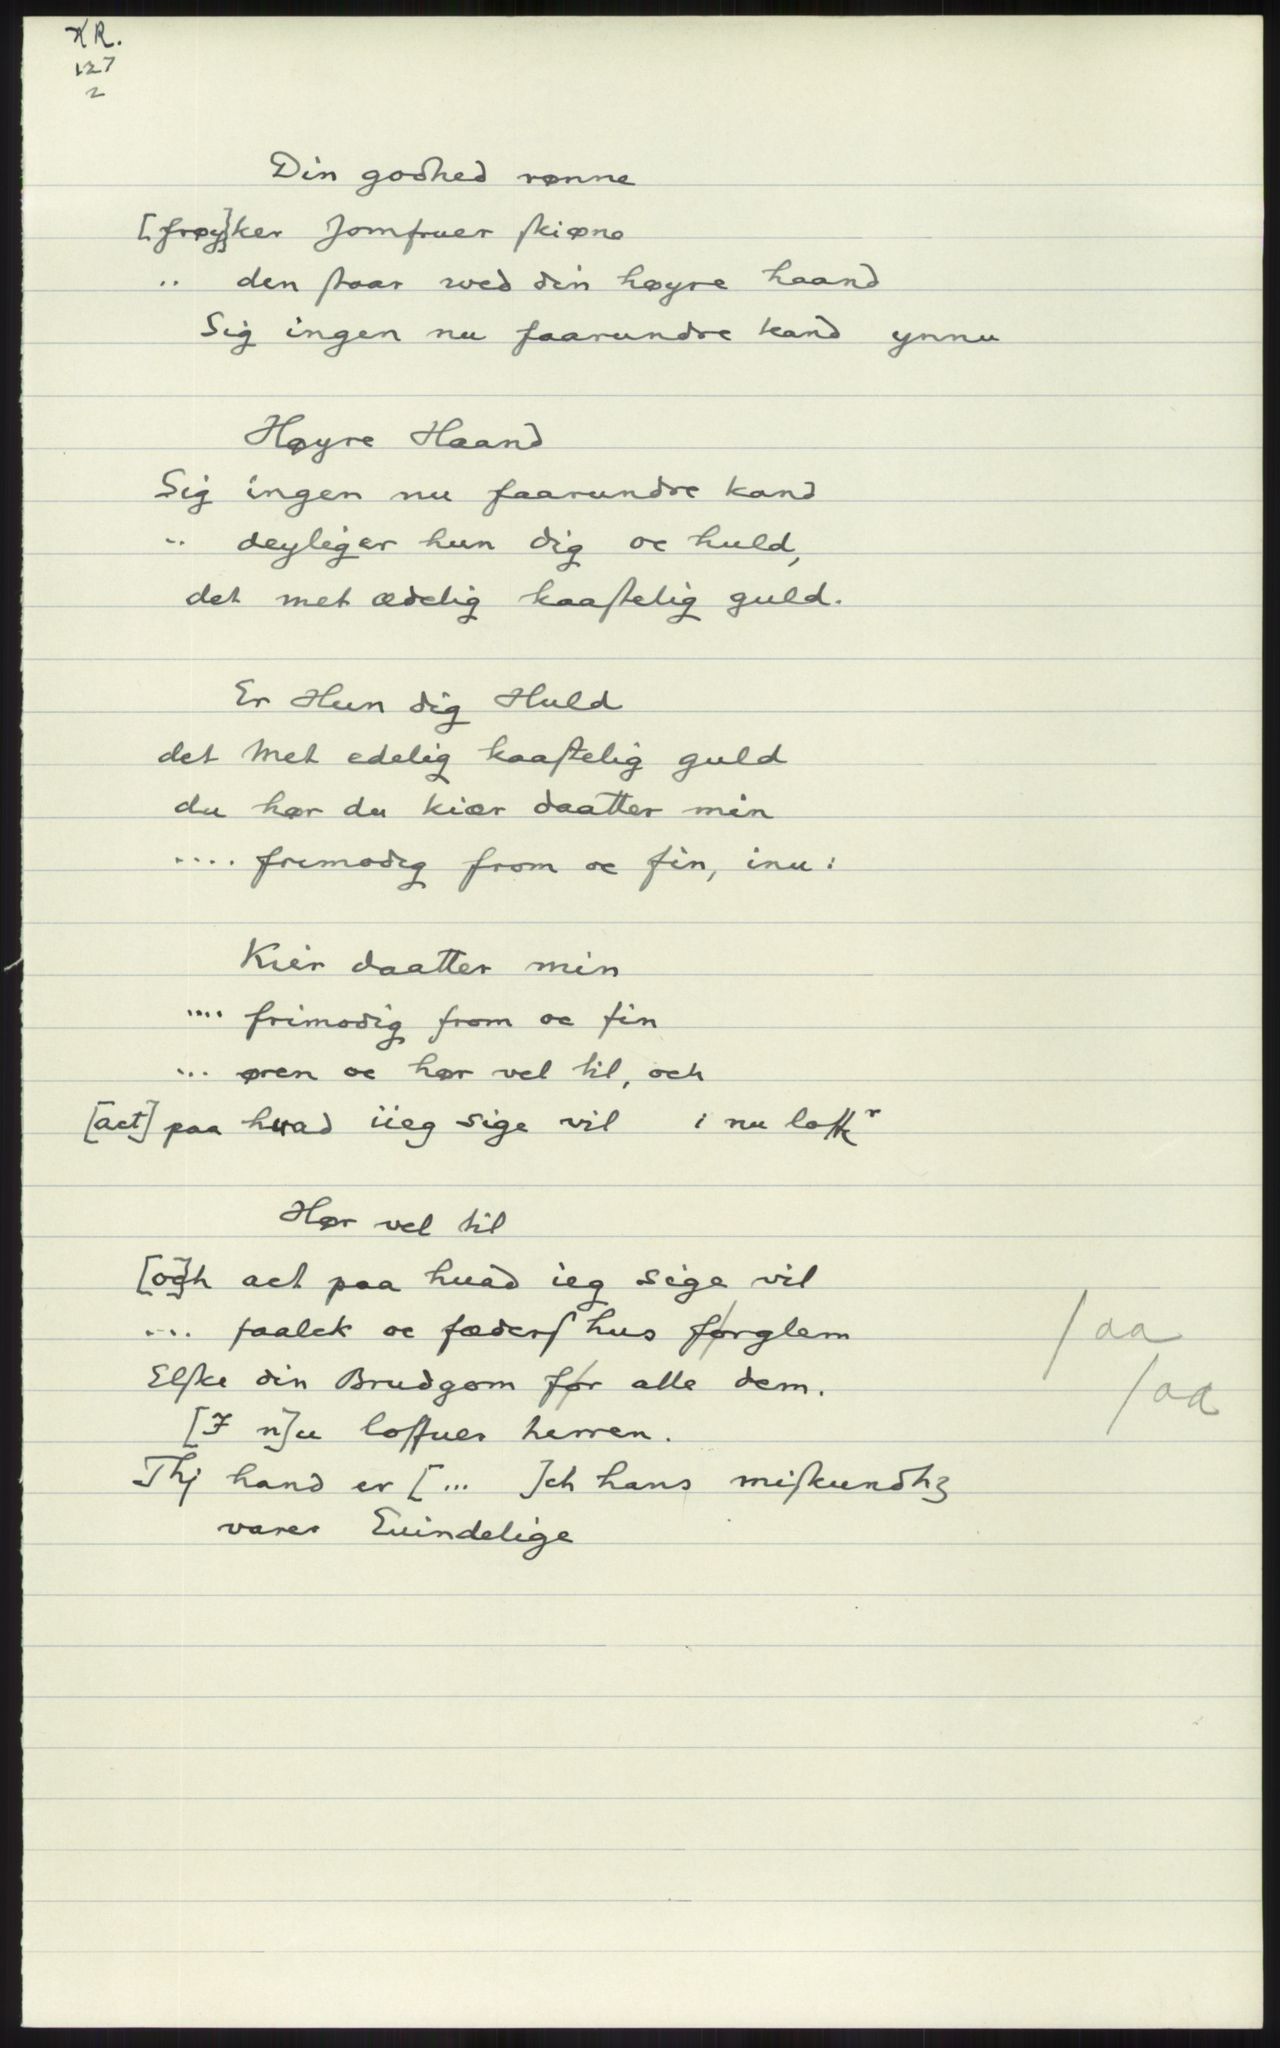 KR.
127
2
Din godhed rønne
[frøy]ker Jomfruer ſkiøne
.. den ſtaar wed din høyre haand
Sig ingen nu faarundre kand ynnu
Høyre Haand
Sig ingen nu faarundre kand
.. deyliger hun dig oc huld,
det met ædelig kaaſtelig guld.
Er Hun dig Huld
det Met edelig kaaſtelig guld
du hør du kiær daatter min
.... frimodig from oc fin, inu:
Kiér daatter min
.... frimodig from oc fin
... øren oc hør vel til, och
[act] paa huad iieg sige vil i nu loffr
Hør vel til
[oc]h act paa huad ieg sige vil
... faalck oc fæderſ hus førglem /aa
Elſke din Brudgom før alle dem. /aa
[I n]u loffuer herren.
Thj hand er [... ]ch hans miſkundhʒ
varer Euindelige